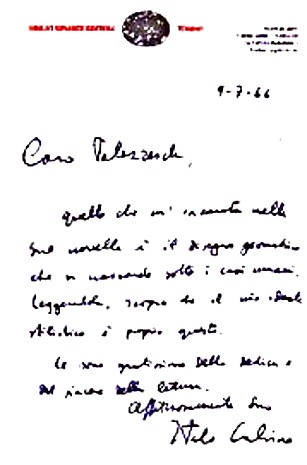 GIULIO EINAUDI EDITORE TORINO
9-7-66
Caro Palazzeschi,
quello che m'incanta nelle
Sue novelle è il disegno geometrico
che si nasconde sotto i casi umani.
Leggendole, scopro che il mio ideale
stilistico è proprio questo.
Le sono gratissimo della dedica e
del piacere della lettura.
Affettuosamente Suo
Italo Calvino